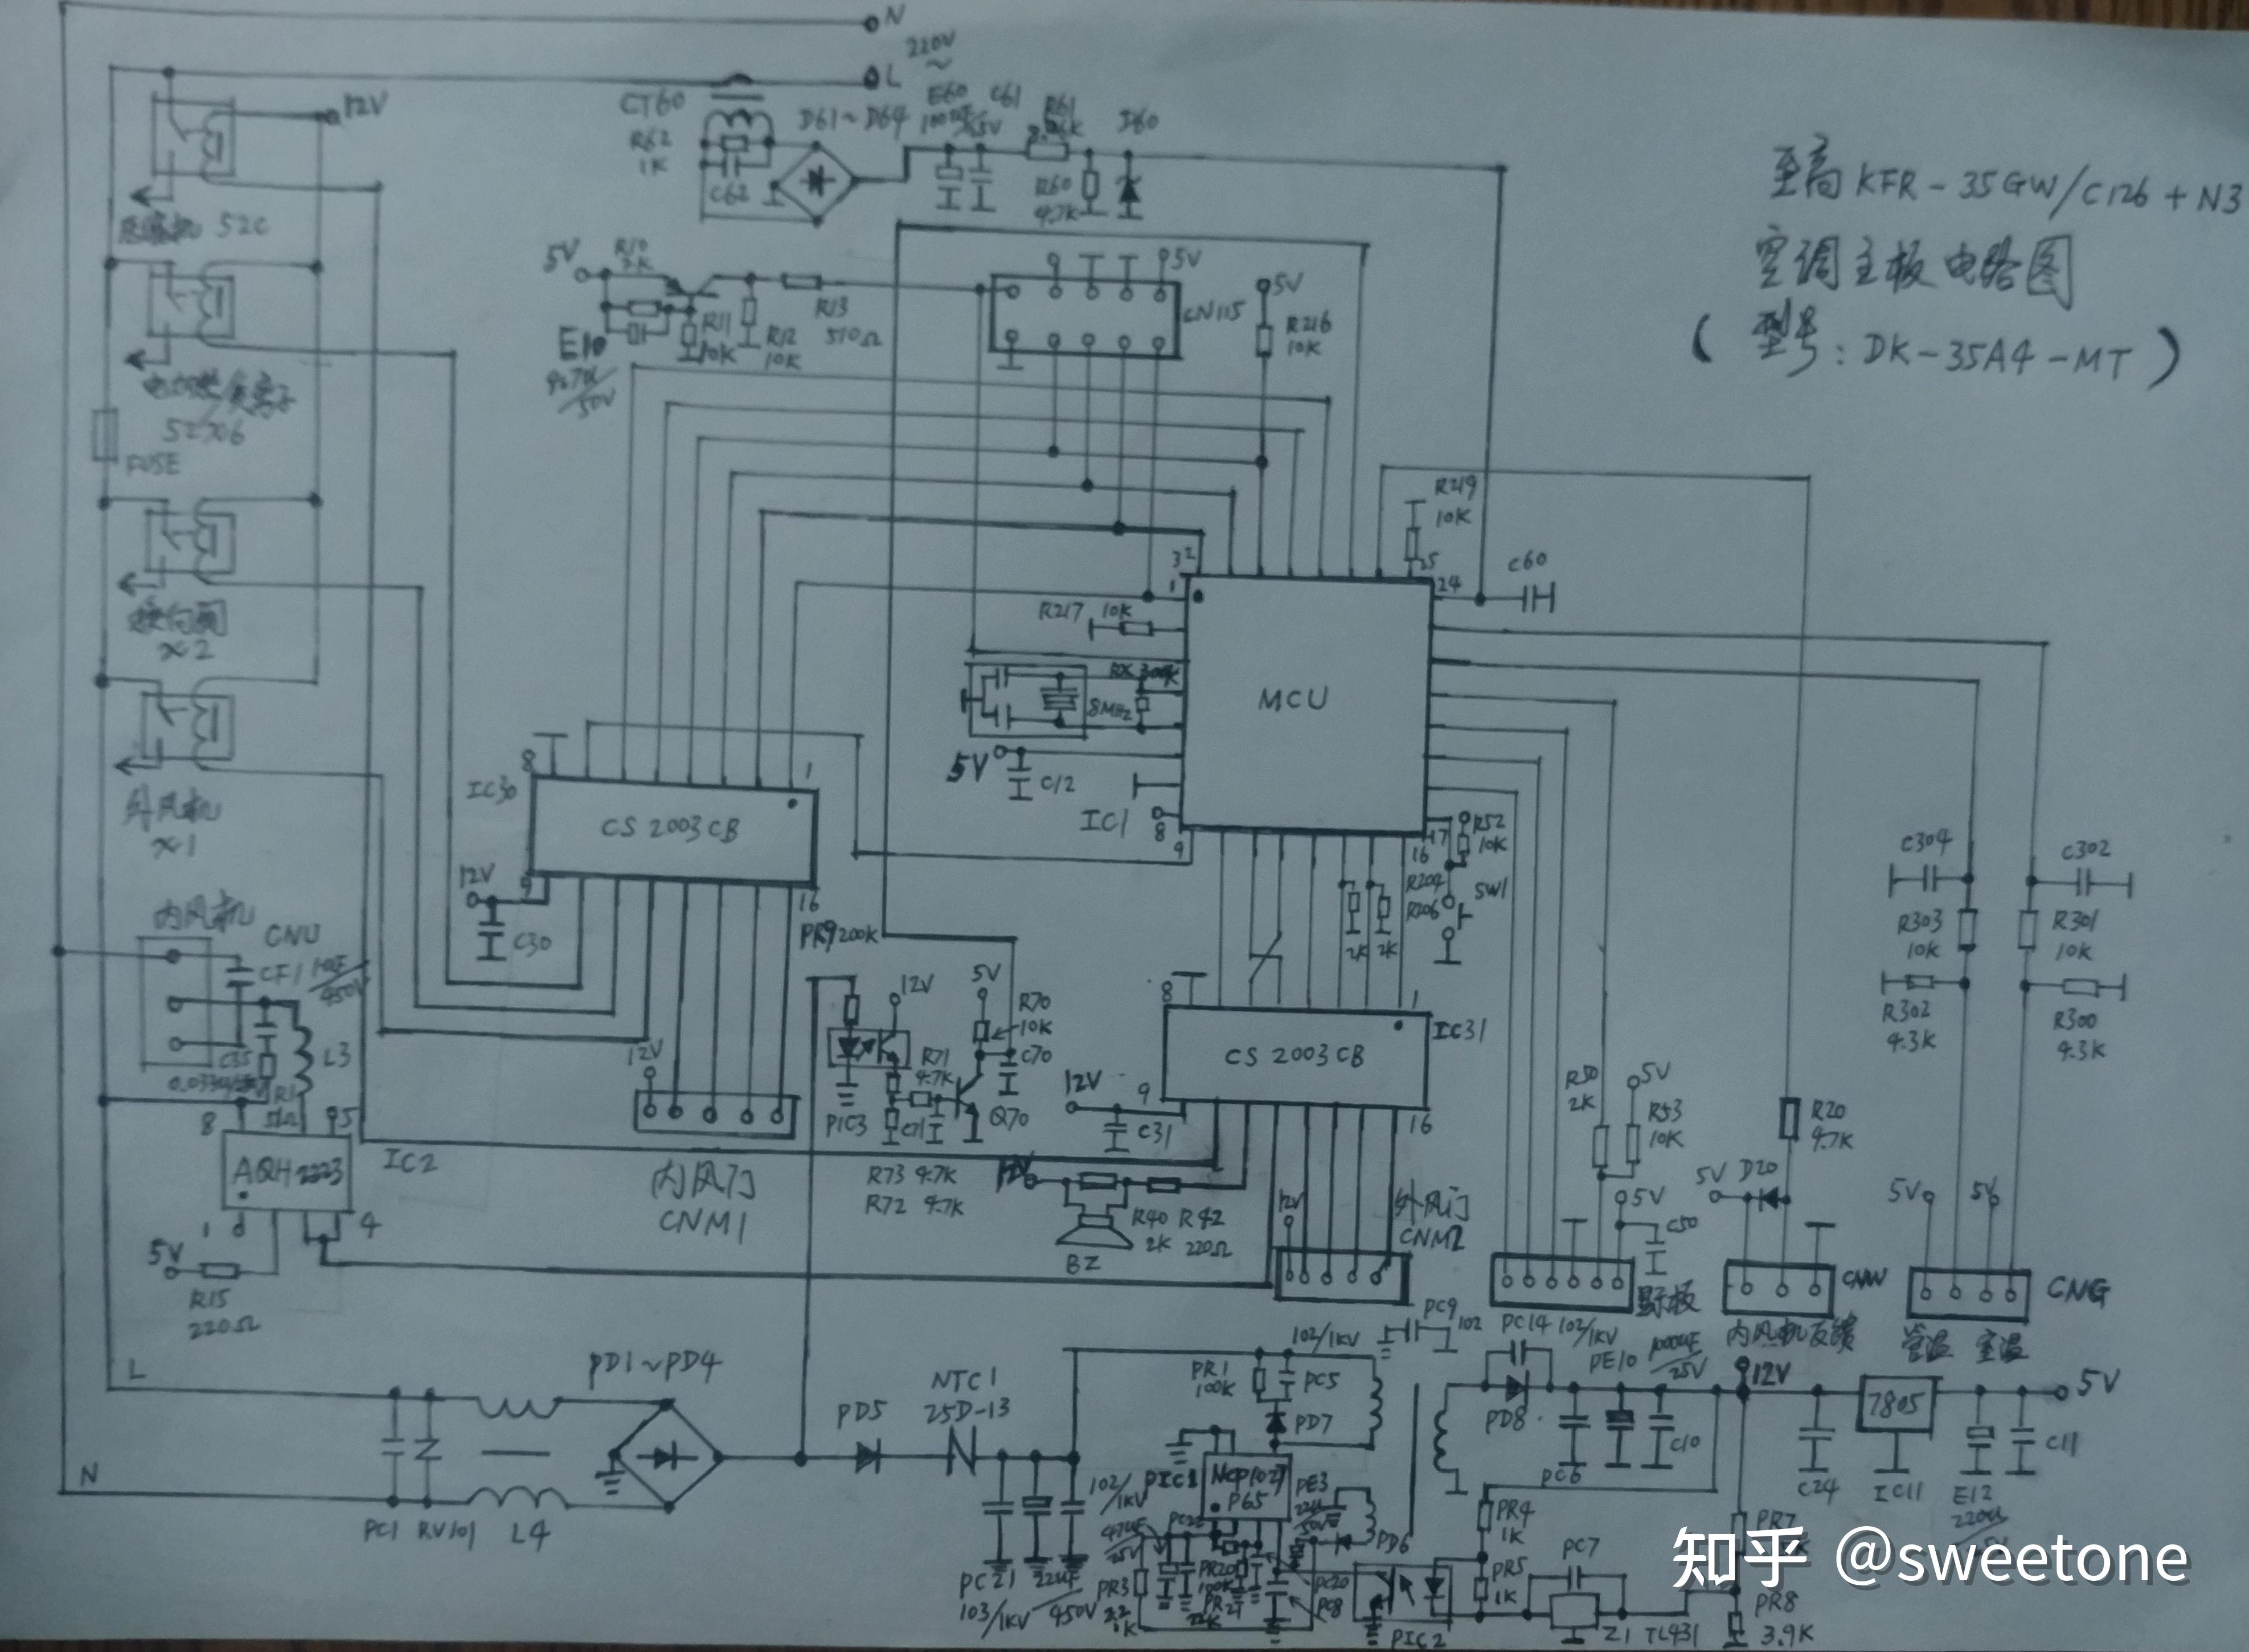 N
220V
~
L
至高 KFR-35GW/C126+N3
空调主板电路图
(型号: DK-35A4-MT)
12V
CT60
R62
1K
C62
D61~D64
E60
C61
R61
D60
R60
4.7K
压缩机 52C
5V
R10
R11
10K
R12
10K
R13
510Ω
E10
4.7u/50V
5V
CN115
5V
R216
10K
FUSE
换向阀
x2
外风机
x1
R219
10K
25
24
C60
32
1
R217 10K
MCU
8MHz
5V
C12
IC1
8
9
16
17
R52
10K
SW1
R204
R206
2K
2K
IC30
8
1
CS 2003CB
9
16
12V
C30
PR9 200K
内风机
CNU
CF1
L3
C35
8
5
AQH2223
IC2
1
4
5V
R15
220Ω
12V
内风门
CNM1
12V
PIC3
R71
4.7K
C71
5V
R70
10K
C70
Q70
R73 4.7K
R72 4.7K
8
1
IC31
CS 2003CB
12V
9
16
C31
12V
R40
2K
R42
220Ω
BZ
12V
外风门
CNM2
R50
2K
5V
R53
10K
5V
C50
显示板
R20
4.7K
5V
D20
CNW
内风机反馈
C304
C302
R303
10K
R301
10K
R302
4.3K
R300
4.3K
5V
5V
CNG
管温
室温
L
N
PC1
RV101
L4
PD1~PD4
PD5
NTC1
25D-13
PC21
103/1KV
22uF/450V
102/1KV
102/1KV
PR1
100K
PC5
PD7
PC9
102
PIC1
NCP1027
P65
PE3
PD6
PR3
PC20
PC8
PIC2
PC14
102/1KV
PD8
PC6
PE10
1000uF/25V
C10
12V
C24
7805
IC11
5V
E12
220u
C11
PR4
1K
PR5
1K
PC7
Z1
TL431
PR7
PR8
3.9K
知乎 @sweetone